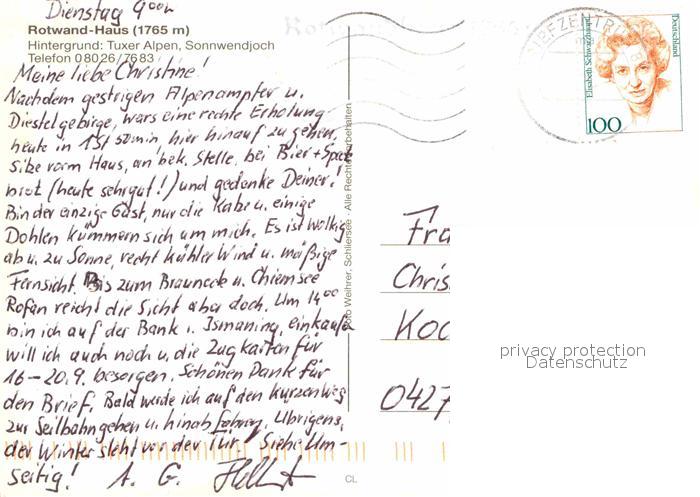 Dienstag 9ooh
Rotwand-Haus (1765 m)
Hintergrund: Tuxer Alpen, Sonnwendjoch
Telefon 08026/7683
Meine liebe Christine!
Nachdem gestrigen Alpenampfer u.
Diestelgebirge, wars eine rechte Erholung
heute in 1St 50min, hier hinauf zu gehen,
Sitze vorm Haus, an bek. Stelle, bei Bier + Speck
brot (heute sehr gut!) und gedenke Deiner!
Bin der einzige Gast, nur die Katze u. einige
Dohlen kümmern sich um mich. Es ist wolkig
ab u. zu Sonne, recht kühler Wind u. mäßige
Fernsicht. Bis zum Brauneck u. Chiemsee
Rofan reicht die Sicht aber doch. Um 14oo
bin ich auf der Bank i. Ismaning, einkaufen
will ich auch noch u. die Zugkarten für
16-20.9. besorgen. Schönen Dank für
den Brief. Bald werde ich auf den kurzen Weg
zur Seilbahn gehen u. hinab fahren. Übrigens,
der Winter steht vor der Tür! Siehe Um-
seitig! A. G.
Foto Weihrer, Schliersee · Alle Rechte vorbehalten
CL
BRIEFZENTRUM
Elisabeth Schwarzhaupt
Deutschland
100
Fra
Chris
Koc
0427
privacy protection
Datenschutz